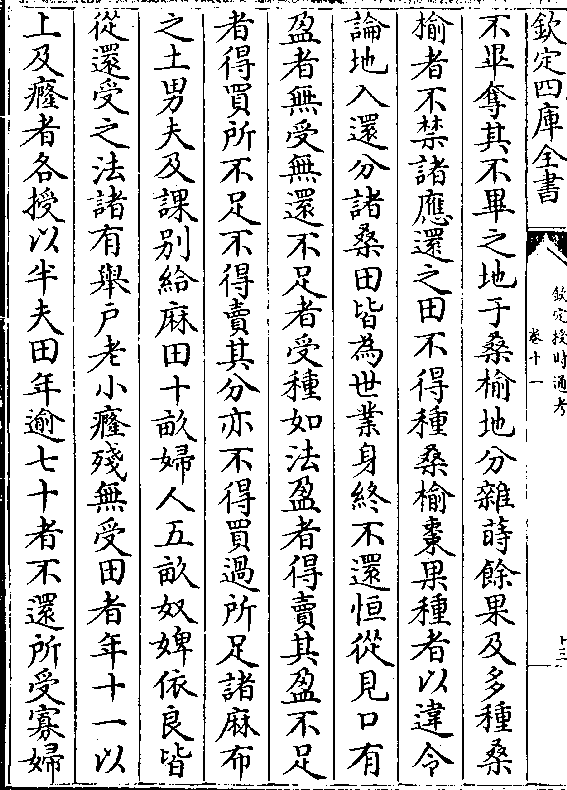 欽定四庫全書
欽定授時通考
卷十一
十三
不畢奪其不畢之地于桑榆地分雜蒔餘果及多種桑
榆者不禁諸應還之田不得種桑榆棗果種者以違令
論地入還分諸桑田皆為世業身終不還恒從見口有
盈者無受無還不足者受種如法盈者得賣其盈不足
者得買所不足不得賣其分亦不得買過所足諸麻布
之土男夫及課別給麻田十畝婦人五畝奴婢依良皆
從還受之法諸有舉户老小癃殘無受田者年十一以
上及癃者各授以半夫田年逾七十者不還所受寡婦